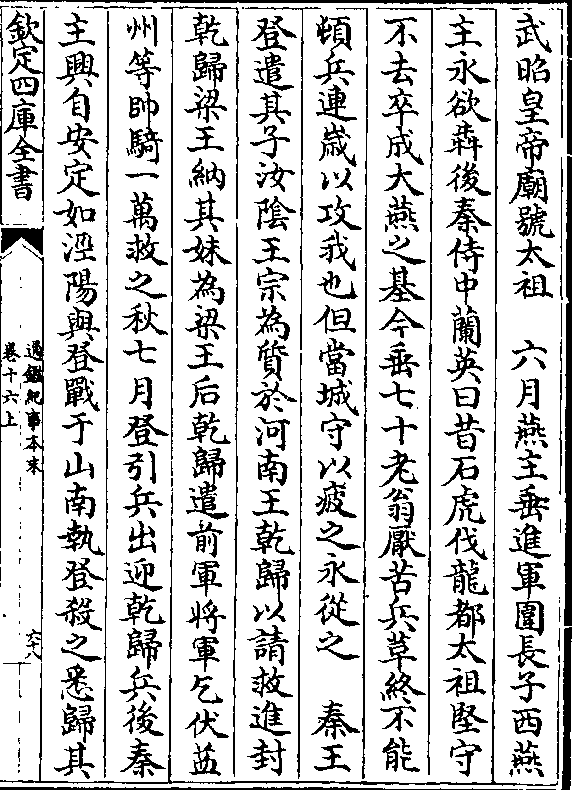 武昭皇帝廟號太祖　六月燕主垂進軍圍長子西燕
主永欲犇後秦侍中蘭英曰昔石虎伐龍都太祖堅守
不去卒成大燕之基今垂七十老翁厭苦兵革終不能
頓兵連歲以攻我也但當城守以疲之永從之　秦王
登遣其子汝陰王宗為質於河南王乾歸以請救進封
乾歸梁王納其妹為梁王后乾歸遣前軍將軍乞伏益
州等帥騎一萬救之秋七月登引兵出迎乾歸兵後秦
主興自安定如涇陽與登戰于山南執登殺之悉歸其
欽定四庫全書
通鑑紀事本末
卷十六上
六十八